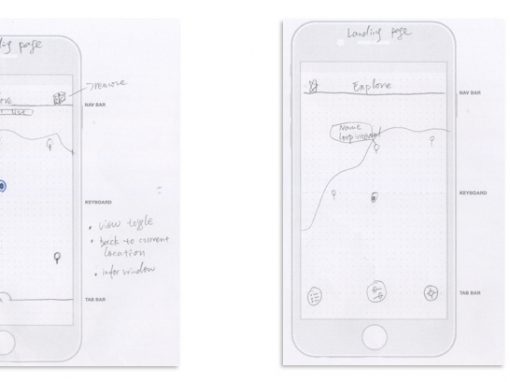 ing page
remove
NAV BAR
KEYBOARD
• view toggle
• back to current
location
• infor window
TAB BAR
Landing page
Explore
NAV BAR
Name
KEYBOARD
TAB BAR